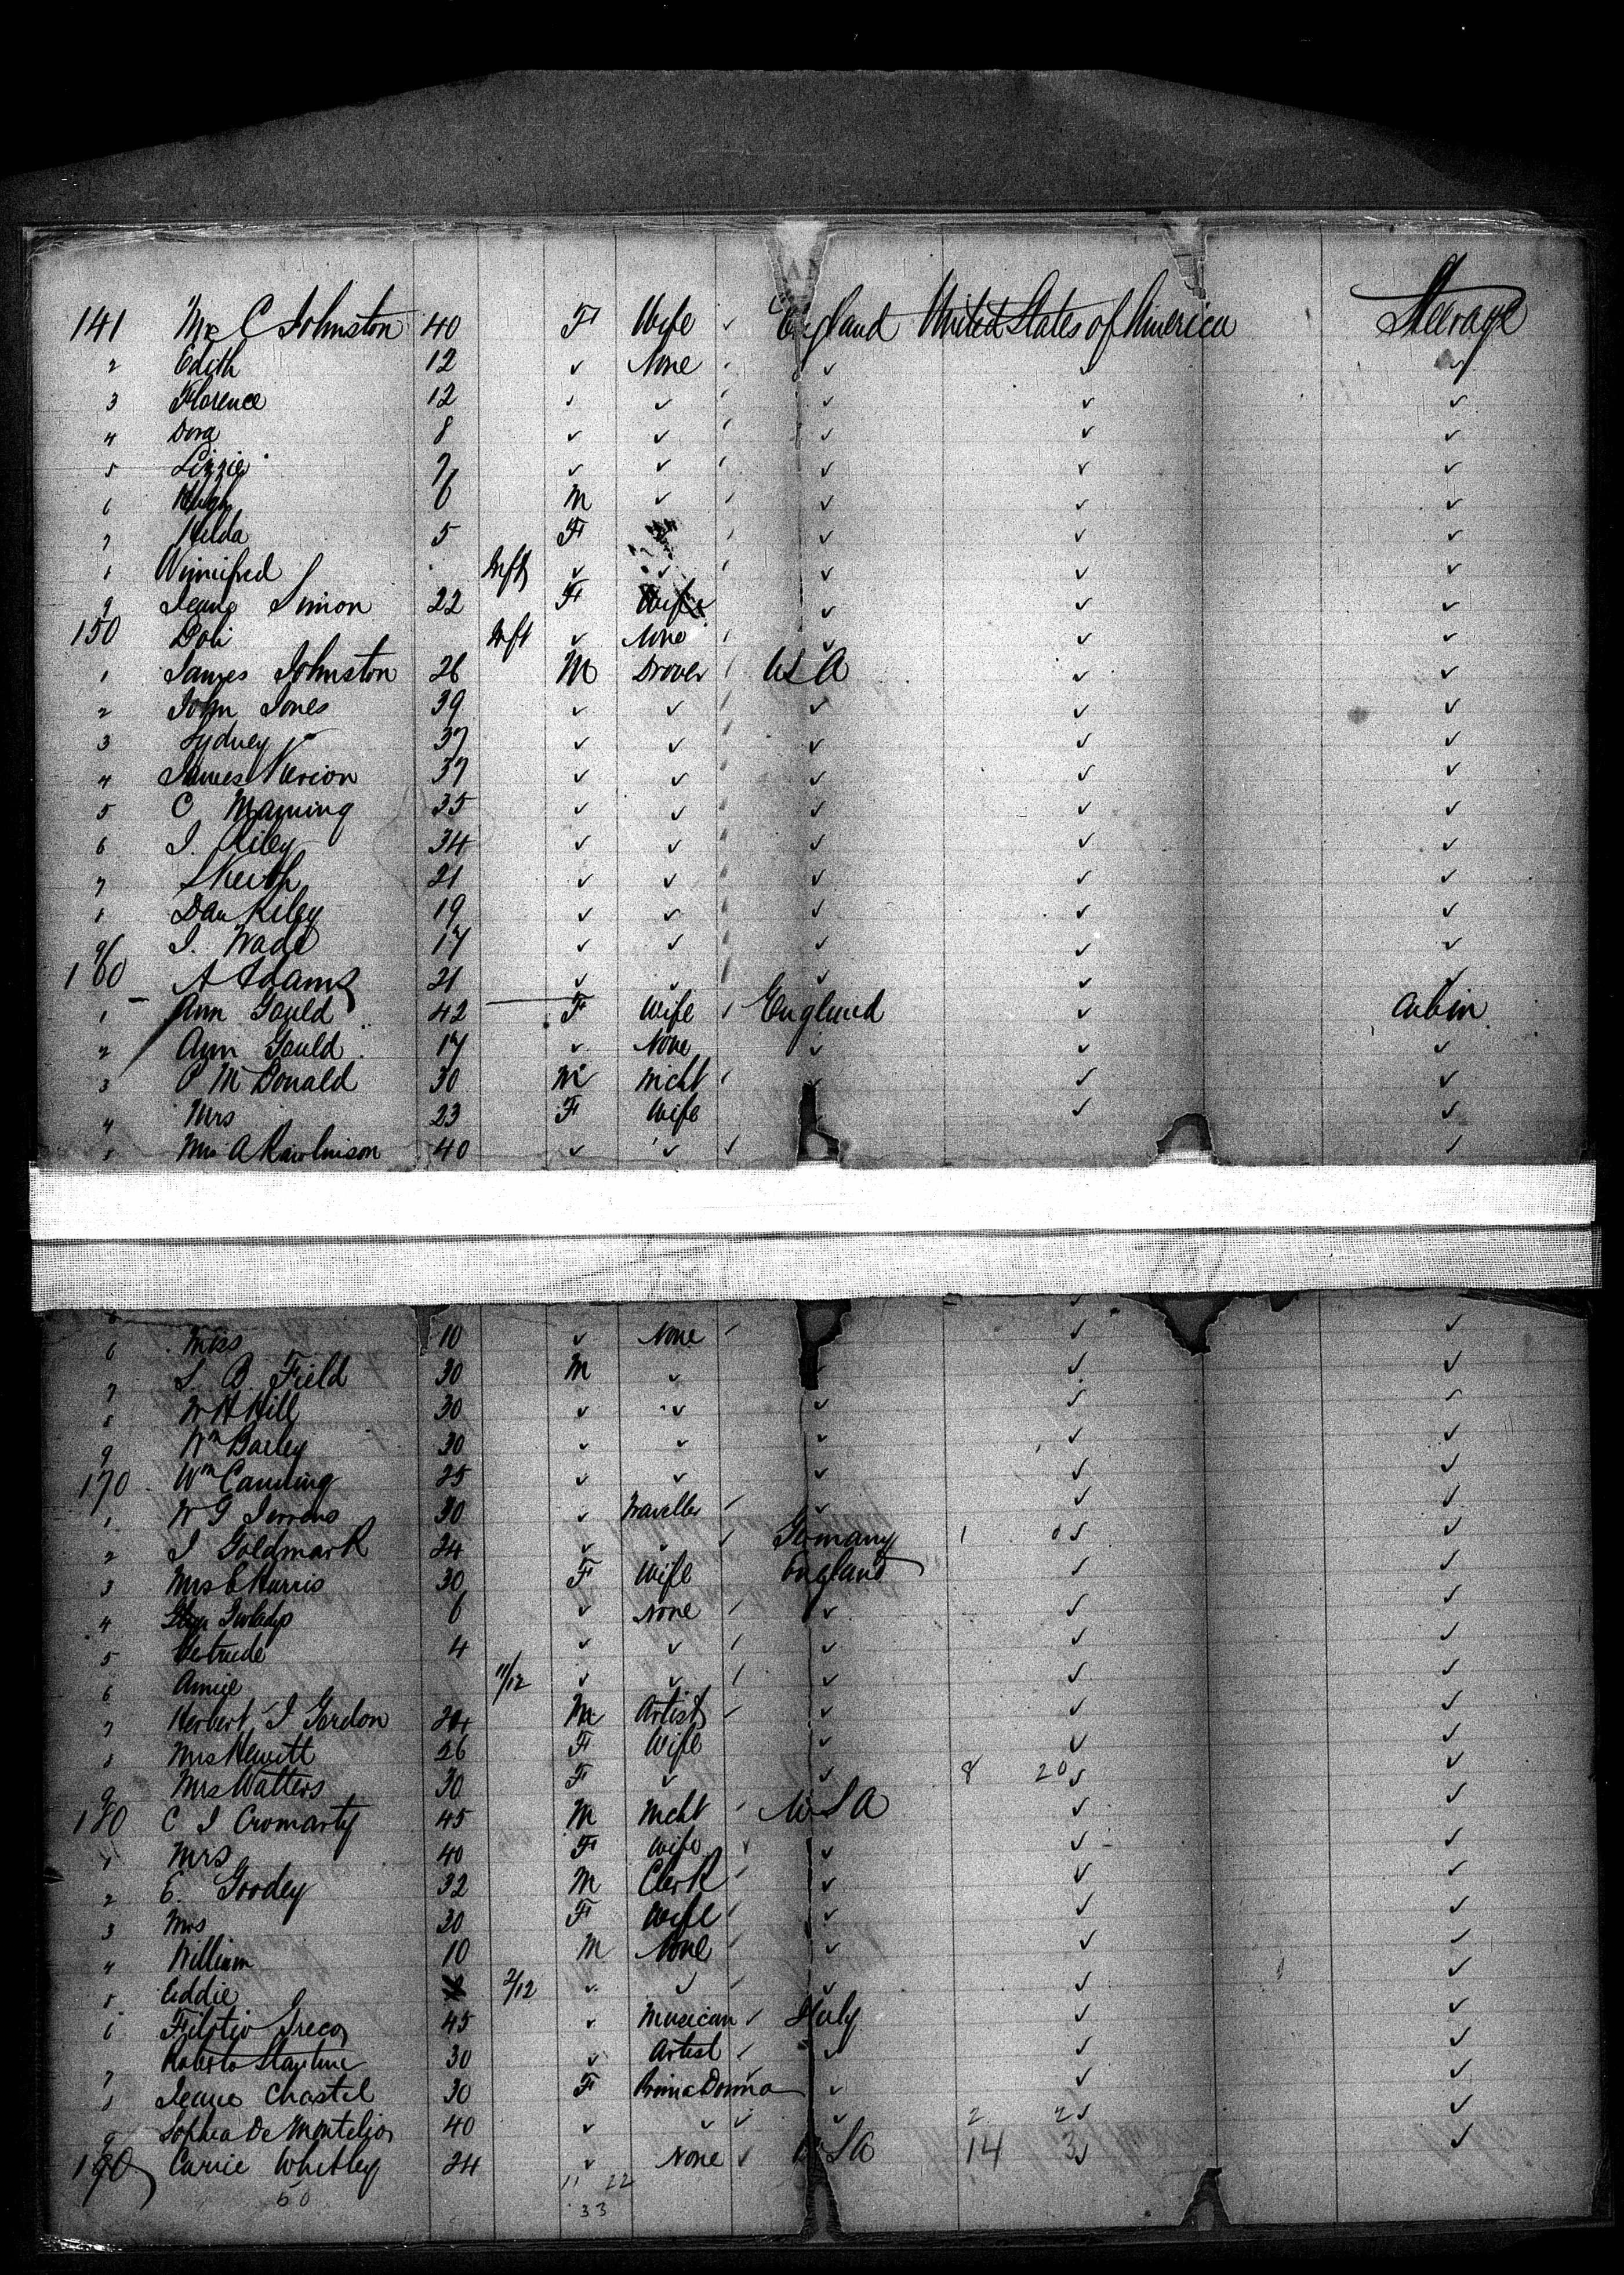 141 Mrs C Johnston 40 F Wife ✓ England United States of America Steerage
2 Edith 12 ✓ None ✓ ✓ ✓
3 Florence 12 ✓ ✓ ✓ ✓ ✓
4 Dora 8 ✓ ✓ ✓ ✓ ✓
5 Lizzie 7 ✓ ✓ ✓ ✓ ✓
6 Hugh 6 M ✓ ✓ ✓ ✓
7 Hilda 5 F ✓ ✓ ✓
8 Winnifred Inft ✓ ✓ ✓ ✓ ✓
9 Simon 22 F Wife ✓ ✓ ✓
150 Inft ✓ None ✓ ✓ ✓
1 James Johnston 26 M Drover USA ✓ ✓
2 John Jones 39 ✓ ✓ ✓ ✓ ✓
3 Sydney 37 ✓ ✓ ✓ ✓ ✓
4 James 37 ✓ ✓ ✓ ✓ ✓
5 C Manning 35 ✓ ✓ ✓ ✓ ✓
6 J. Riley 34 ✓ ✓ ✓ ✓ ✓
7 Keith 21 ✓ ✓ ✓ ✓ ✓
8 Dan Riley 19 ✓ ✓ ✓ ✓ ✓
9 J. Wade 17 ✓ ✓ ✓ ✓ ✓
160 A Adams 21 ✓ ✓ ✓ ✓ ✓
1 Ann Gould 42 F Wife England ✓ Cabin
2 Ann Gould 17 ✓ None ✓ ✓ ✓
3 McDonald 30 M Mcht ✓ ✓ ✓
4 Mrs 23 F Wife ✓ ✓
5 Mrs A Rawlinson 40 ✓ ✓ ✓ ✓
6 Miss 10 ✓ None ✓ ✓
7 B. Field 30 M ✓ ✓ ✓ ✓
8 W H Hill 30 ✓ ✓ ✓ ✓ ✓
9 Wm Barley 30 ✓ ✓ ✓ ✓ ✓
170 Wm Canning 25 ✓ ✓ ✓ ✓ ✓
1 W G 30 ✓ Traveller ✓ ✓ ✓
2 J Goldmark 24 ✓ ✓ ✓ Germany 1 ✓ ✓
3 Mrs C Harris 30 F Wife England ✓ ✓
4 Gwladys 6 ✓ None ✓ ✓ ✓
5 Gertrude 4 ✓ ✓ ✓ ✓ ✓
6 Annie 11/12 ✓ ✓ ✓ ✓ ✓
7 Herbert J Gordon 24 M Artist ✓ ✓ ✓
8 Mrs Hewitt 26 F Wife ✓ ✓ ✓
9 Mrs Watters 30 F ✓ ✓ 8 20 ✓ ✓
180 C J Cromarty 45 M Mcht USA ✓ ✓
1 Mrs 40 F Wife ✓ ✓ ✓
2 E. Goodey 32 M Clerk ✓ ✓ ✓
3 Mrs 30 F Wife ✓ ✓ ✓
4 William 10 M None ✓ ✓ ✓
5 Eddie 2/12 ✓ ✓ ✓ ✓ ✓
6 Filoteo Greco 45 ✓ Musician ✓ Italy ✓ ✓
7 Roberto 30 ✓ Artist ✓ ✓ ✓
8 Jeane Chastel 30 F Prima Donna ✓ ✓ ✓
9 Sophia De 40 ✓ ✓ ✓ ✓ 2 2 ✓ ✓
190 Carrie Whitley 24 ✓ None ✓ USA 14 3 ✓ ✓
50 11 22
33